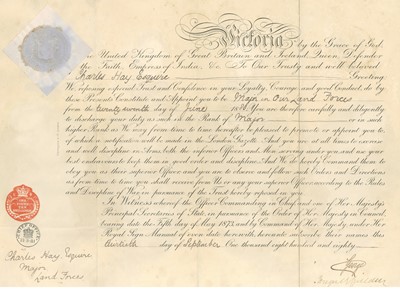 Victoria by the Grace of God,
the United Kingdom of Great Britain and Ireland, Queen, Defender
the Faith, Empress of India, &c. To Our Trusty and well beloved
Charles Hay Esquire Greeting.
We reposing especial Trust and Confidence in your Loyalty, Courage, and good Conduct, do by
these Presents Constitute and Appoint you to be Major in Our Land Forces
from the twenty seventh day of June You are therefore carefully and diligently
to discharge your duty as such in the Rank of Major or in such
higher Rank as We may from time to time hereafter be pleased to promote or appoint you to,
of which a notification will be made in the London Gazette, And you are at all times to exercise
and well discipline in Arms, both the inferior Officers and Men serving under you and use your
best endeavours to keep them in good order and discipline. And We do hereby Command them to
obey you as their superior Officer and you to observe and follow such Orders and Directions
as from time to time you shall receive from Us or any your superior Officer according to the Rules
and Discipline of War, in pursuance of the Trust hereby reposed in you.
In Witness whereof the Officer Commanding in Chief and one of Her Majesty's
Principal Secretaries of State, in pursuance of the Order of Her Majesty in Council,
dated the Fifth day of May 1873 and by Command of Her Majesty under Her
Royal Sign Manual of even date herewith, hereunto subscribe their names this
day of September One thousand eight hundred and eighty
Charles Hay, Esquire
Major
Land Forces